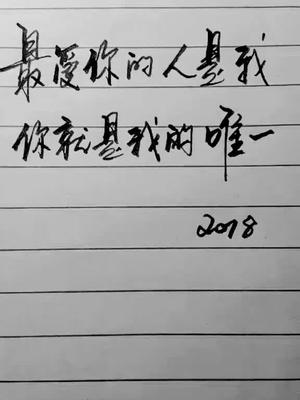 最爱你的人是我
你就是我的唯一
2018